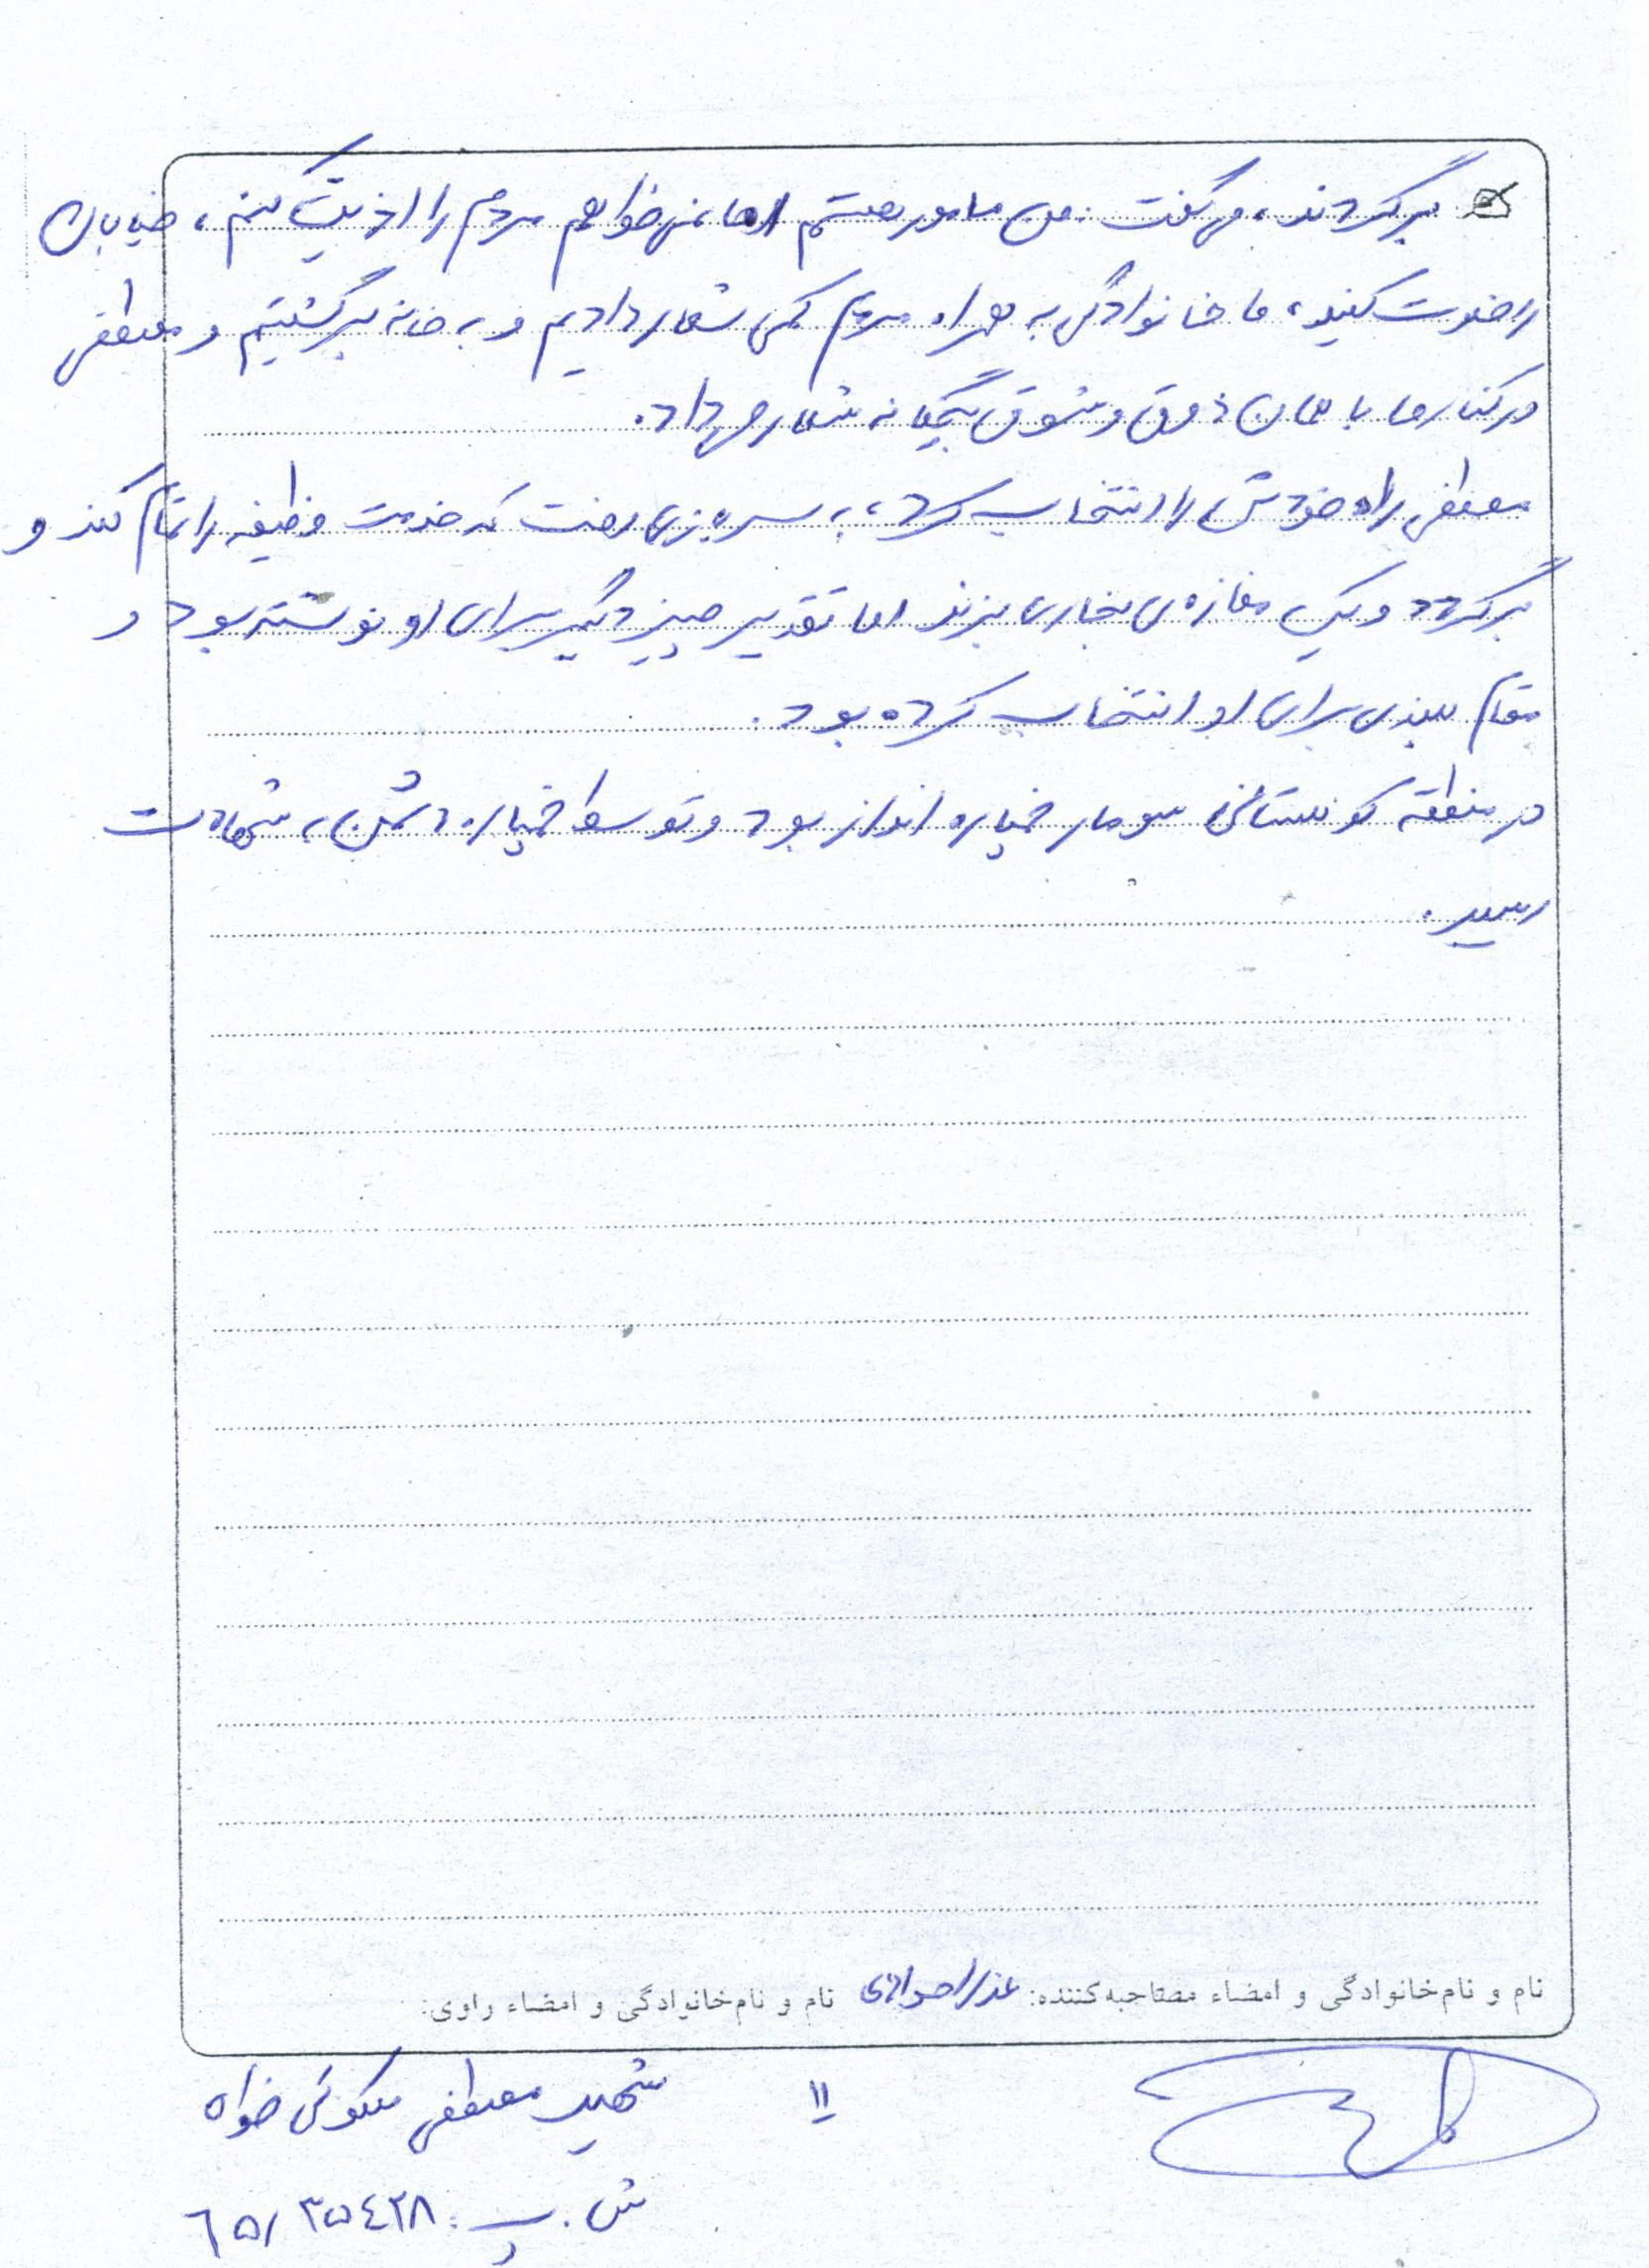 برگردند، می گفت: من مامور هستم اما نمی خواهم مردم را اذیت کنم، خیابان
را خلوت کنید، ما خانوادگی به همراه مردم کمی شعار دادیم و به خانه برگشتیم و مصطفی
در کنار ما با همان ذوق و شوق بچگیانه شعار می داد.
مصطفی راه خودش را انتخاب کرد، به سربازی رفت که خدمت وظیفه را تمام کند و
برگردد و یک مغازه ی نجاری بزند اما تقدیر چیز دیگر برای او نوشته بود و
مقام بلندی برای او انتخاب کرده بود.
در منطقه کوهستانی سومار خمپاره انداز بود و توسط خمپاره دشمن به شهادت
رسید.
نام و نام خانوادگی و امضاء مصاحبه کننده: عذرا نام و نام خانوادگی و امضاء راوی:
شهید مصطفی خواه
۱۱
ش. پ: ۶۵/۳۵۴۲۸